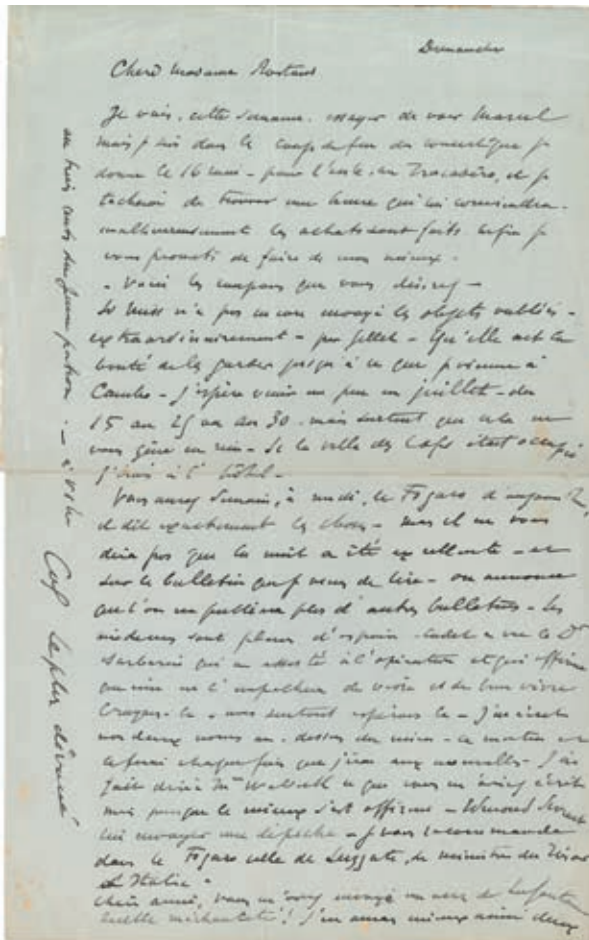 Dimanche
Chère Madame Rostand
Je vais, cette semaine, essayer de voir Marcel
mais je suis dans le coup de feu du que je
donne le 16 mai - pour l' au Trocadéro, et je
tâcherai de trouver une heure qui lui conviendra.
malheureusement les achats sont faits enfin je
vous promets de faire de mon mieux.
- Voici les coupons que vous désirez -
La Miss n'a pas encore envoyé les objets oubliés -
- Qu'elle ait la
bonté de les garder jusqu'à ce que je vienne à
Cambo - J'espère venir un peu en juillet - du
15 au 25 ou au 30 - mais surtout que cela ne
vous gêne en rien - Si la villa des était occupée
j'irais à l'hôtel -
Vous aurez demain, à midi, le Figaro d'aujourd'hui,
il dit exactement les choses - mais il ne vous
dira pas que la nuit a été excellente - et
sur le bulletin que je viens de lire - on annonce
qu'on ne publiera plus d'autres bulletins - Les
médecins sont pleins d'espoir - a vu le Dr
qui a assisté à l'opération et qui affirme
que rien ne l'empêchera de vivre et de bien vivre
Croyons-le - nous surtout espérons-le - J'ai écrit
vos deux noms au-dessus du mien - ce matin et
le ferai chaque fois que j'irai aux nouvelles - J'ai
fait dire à Mme ce que vous m'aviez écrit
mais puisque le mieux s'est affirmé -
lui envoyer une dépêche - Je vous recommande
dans le Figaro celle de Luzzatti, du ministre du Trésor
d'Italie -
Chère amie, vous m'avez envoyé un vers de
quelle méchanceté! J'en aurais mieux aimé deux
au trois
- à votre
le plus dévoué